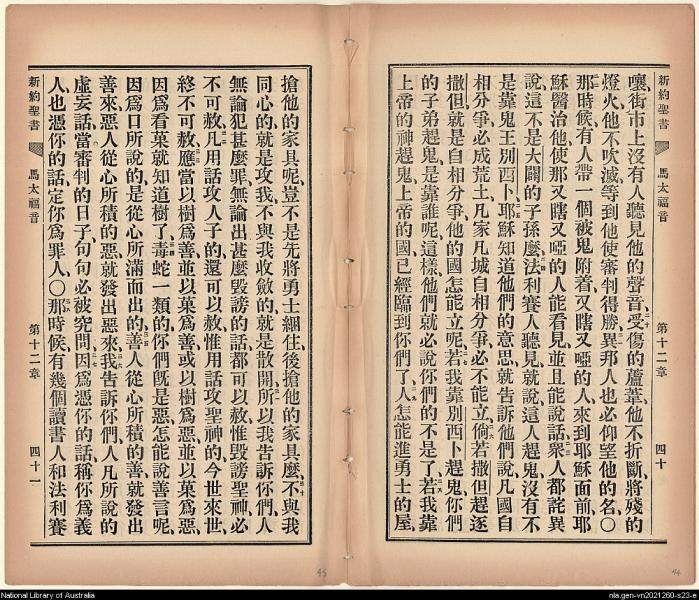 新約聖書 馬太福音 第十二章 四十
嚷街市上沒有人聽見他的聲音受傷的蘆葦他不折斷將殘的
燈火他不吹滅等到他使審判得勝異那人也必仰望他的名〇
那時候有人帶一個被鬼附着又瞎又啞的人來到耶穌面前耶
穌醫治他使那又瞎又啞的人能看見並且能說話衆人都詫異
說這不是大闢的子孫麼法利賽人聽見就說這人趕鬼沒有不
是靠鬼王別西卜耶穌知道他們的意思就告訴他們說凡國自
相分爭必成荒土凡家凡城自相分爭必不能立倘若撒但趕逐
撒但就是自相分爭他的國怎能立呢若我靠別西卜趕鬼你們
的子弟趕鬼是靠誰呢這樣他們就必說你們的不是了若我靠
上帝的神趕鬼上帝的國已經臨到你們了人怎能進勇士的屋
搶他的家具呢豈不是先將勇士綑住後搶他的家具麼不與我
同心的就是攻我不與我收斂的就是散開所以我告訴你們人
無論犯甚麼罪無論出甚麼毀謗的話都可以赦惟毀謗聖神必
不可赦凡用話攻人子的還可以赦惟用話攻聖神的今世來世
終不可赦應當以樹爲善並以菓爲善或以樹爲惡並以菓爲惡
因爲看菓就知道樹了毒蛇一類的你們旣是惡怎能說善言呢
因爲口所說的是從心所滿而出的善人從心所積的善就發出
善來惡人從心所積的惡就發出惡來我告訴你們人凡所說的
虛妄話當審判的日子句句必被究問因爲憑你的話稱你爲義
人也憑你的話定你爲罪人〇那時候有幾個讀書人和法利賽
新約聖書 馬太福音 第十二章 四十一
45
44
National Library of Australia
nla.gen-vn2021260-s23-e